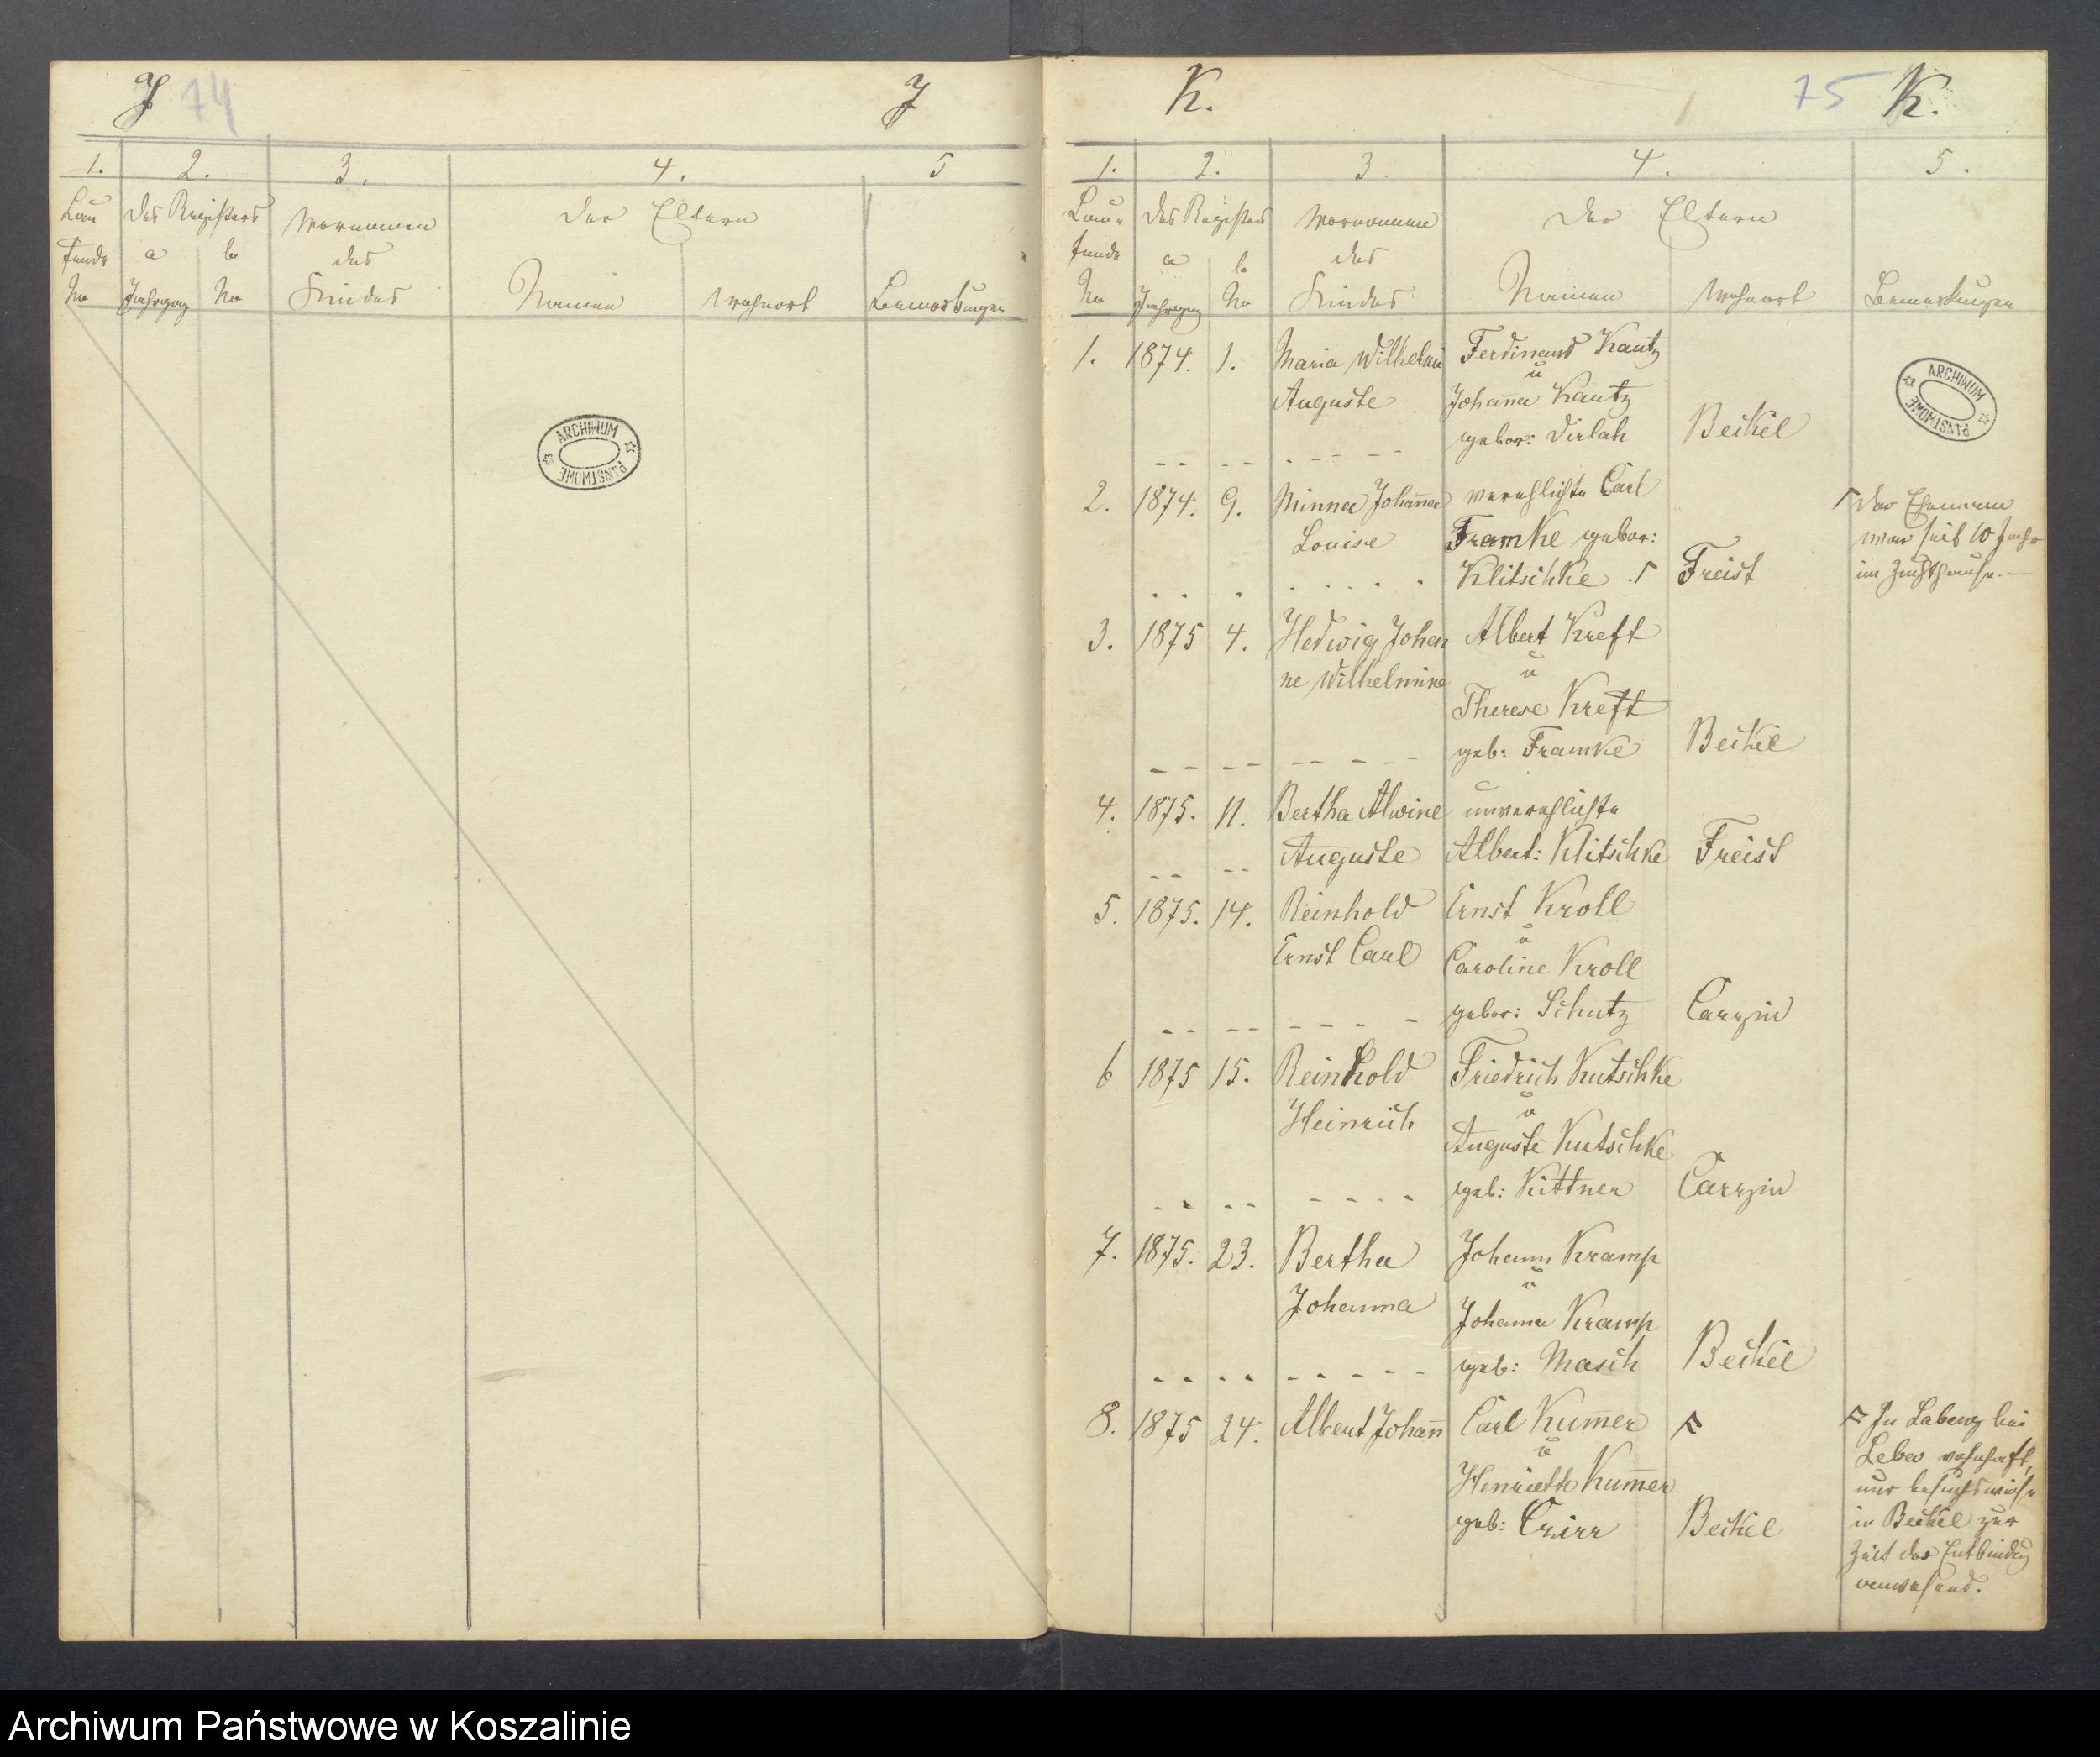 J 74 J
1. 2. 3. 4. 5
Lau des Registers Vornamen der Eltern
fende a b des
No Jahrgang No Kindes Namen Wohnort Bemerkungen
ARCHIWUM
PAŃSTWOWE
K. 75 K.
1. 2. 3. 4. 5.
Lau- des Registers Vornamen der Eltern
fende a b des
No Jahrgang No Kindes Namen Wohnort Bemerkungen
1. 1874. 1. Maria Wilhelmi Ferdinand Kautz
u
Auguste Johanna Kautz
gebor: Dirlah Beckel
ARCHIWUM
PAŃSTWOWE
2. 1874. 9. Minna Johanna verehlichte Carl
Louise Framke gebor:
Klitschke Freist
Der Ehemann
war seit 10 Jahr
im Zuchthause.
3. 1875 4. Hedwig Johan Albert Kreft
u
ne Wilhelmine Therese Kreft
geb: Framke Beckel
4. 1875. 11. Bertha Alwine unverehlichte
Auguste Albert: Klitschke Freist
5. 1875. 14. Reinhold Ernst Kroll
u
Ernst Carl Caroline Kroll
gebor: Schutz Carzin
6 1875 15. Reinhold Friedrich Kutschke
u
Heinrich Auguste Kutschke
geb: Kittner Carzin
7. 1875. 23. Bertha Johann Kramp
u
Johanna Johanna Kramp
geb: Masch Beckel
8. 1875 24. Albert Johann Carl Kummer
u
Henriette Kummer
geb: Beckel
In Labenz bei
Leba wohnhaft,
nur besuchsweise
in Beckel zur
Zeit der Entbindung
anwesend.
Archiwum Państwowe w Koszalinie